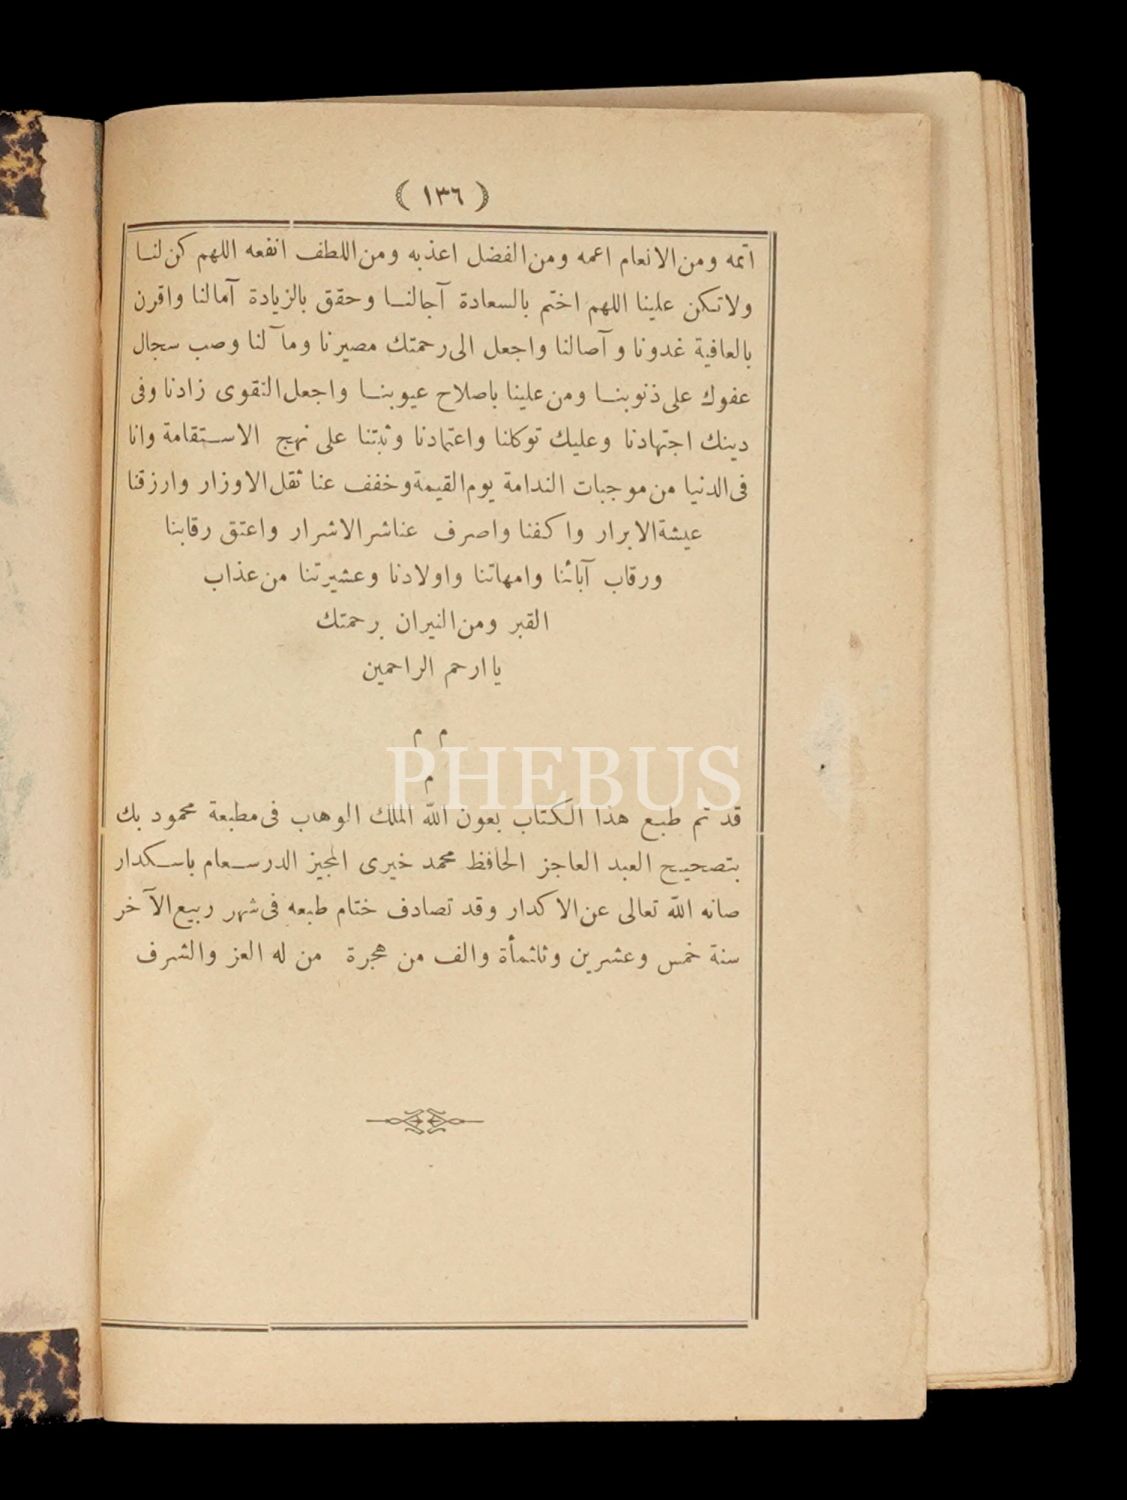 ﴿ ١٣٦ ﴾
اتمه ومن الانعام اعمه ومن الفضل اعذبه ومن اللطف انفعه اللهم كن لنا
ولاتكن علينا اللهم اختم بالسعادة آجالنا وحقق بالزيادة آمالنا واقرن
بالعافية غدونا وآصالنا واجعل الى رحمتك مصيرنا ومآلنا وصب سجال
عفوك على ذنوبنا ومن علينا باصلاح عيوبنا واجعل التقوى زادنا وفى
دينك اجتهادنا وعليك توكلنا واعتمادنا وثبتنا على نهج الاستقامة وانا
فى الدنيا من موجبات الندامة يوم القيمة وخفف عنا ثقل الاوزار وارزقنا
عيشة الابرار واكفنا واصرف عنا شر الاشرار واعتق رقابنا
ورقاب آبائنا وامهاتنا واولادنا وعشيرتنا من عذاب
القبر ومن النيران برحمتك
يا ارحم الراحمين
م م
م
PHEBUS
قد تم طبع هذا الكتاب بعون الله الملك الوهاب فى مطبعة محمود بك
بتصحيح العبد العاجز الحافظ محمد خيرى المجيز الدرسعام باسكدار
صانه الله تعالى عن الاكدار وقد تصادف ختام طبعه فى شهر ربيع الآخر
سنة خمس وعشرين وثلثمأة والف من هجرة من له العز والشرف